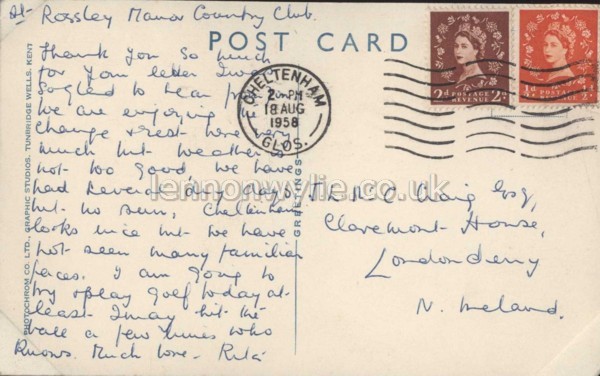 At Rossley Manor Country Club.
POST CARD
Thank you so much
for your letter I was
so glad to hear from
we are enjoying
change & rest here very
much but weather is
not too good we have
had several dry days
but no sun, Cheltenham
looks nice but we have
not seen many familiar
faces. I am going to
try & play golf today at
least I may hit the
ball a few times who
knows. Much love - Rita
CHELTENHAM
2 PM
18 AUG
1958
GLOS.
2d POSTAGE REVENUE 2d
½d POSTAGE REVENUE
GREETINGS
PHOTOCHROM CO. LTD., GRAPHIC STUDIOS, TUNBRIDGE WELLS, KENT
McC. Craig Esq,
Claremont House,
Londonderry
N. Ireland.
lennonwylie.co.uk